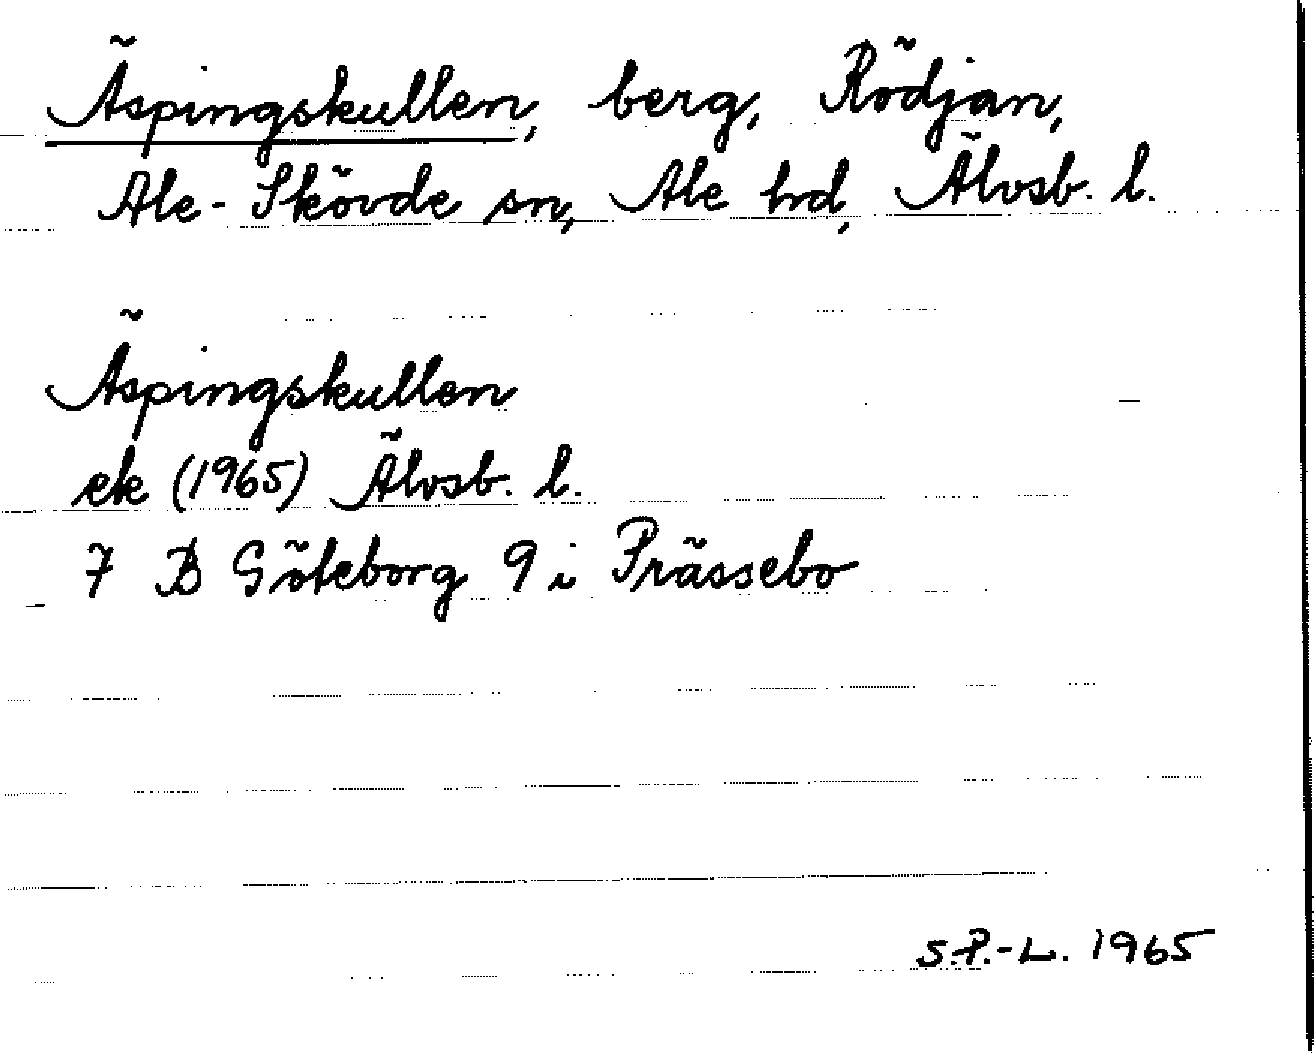 Äspingskullen, berg, Rödjan,
Ale-Skövde sn, Ale hd, Älvsb. l.
Äspingskullen
ek (1965) Älvsb. l.
7 B Göteborg 9 i Prässebo
S.P.-L. 1965